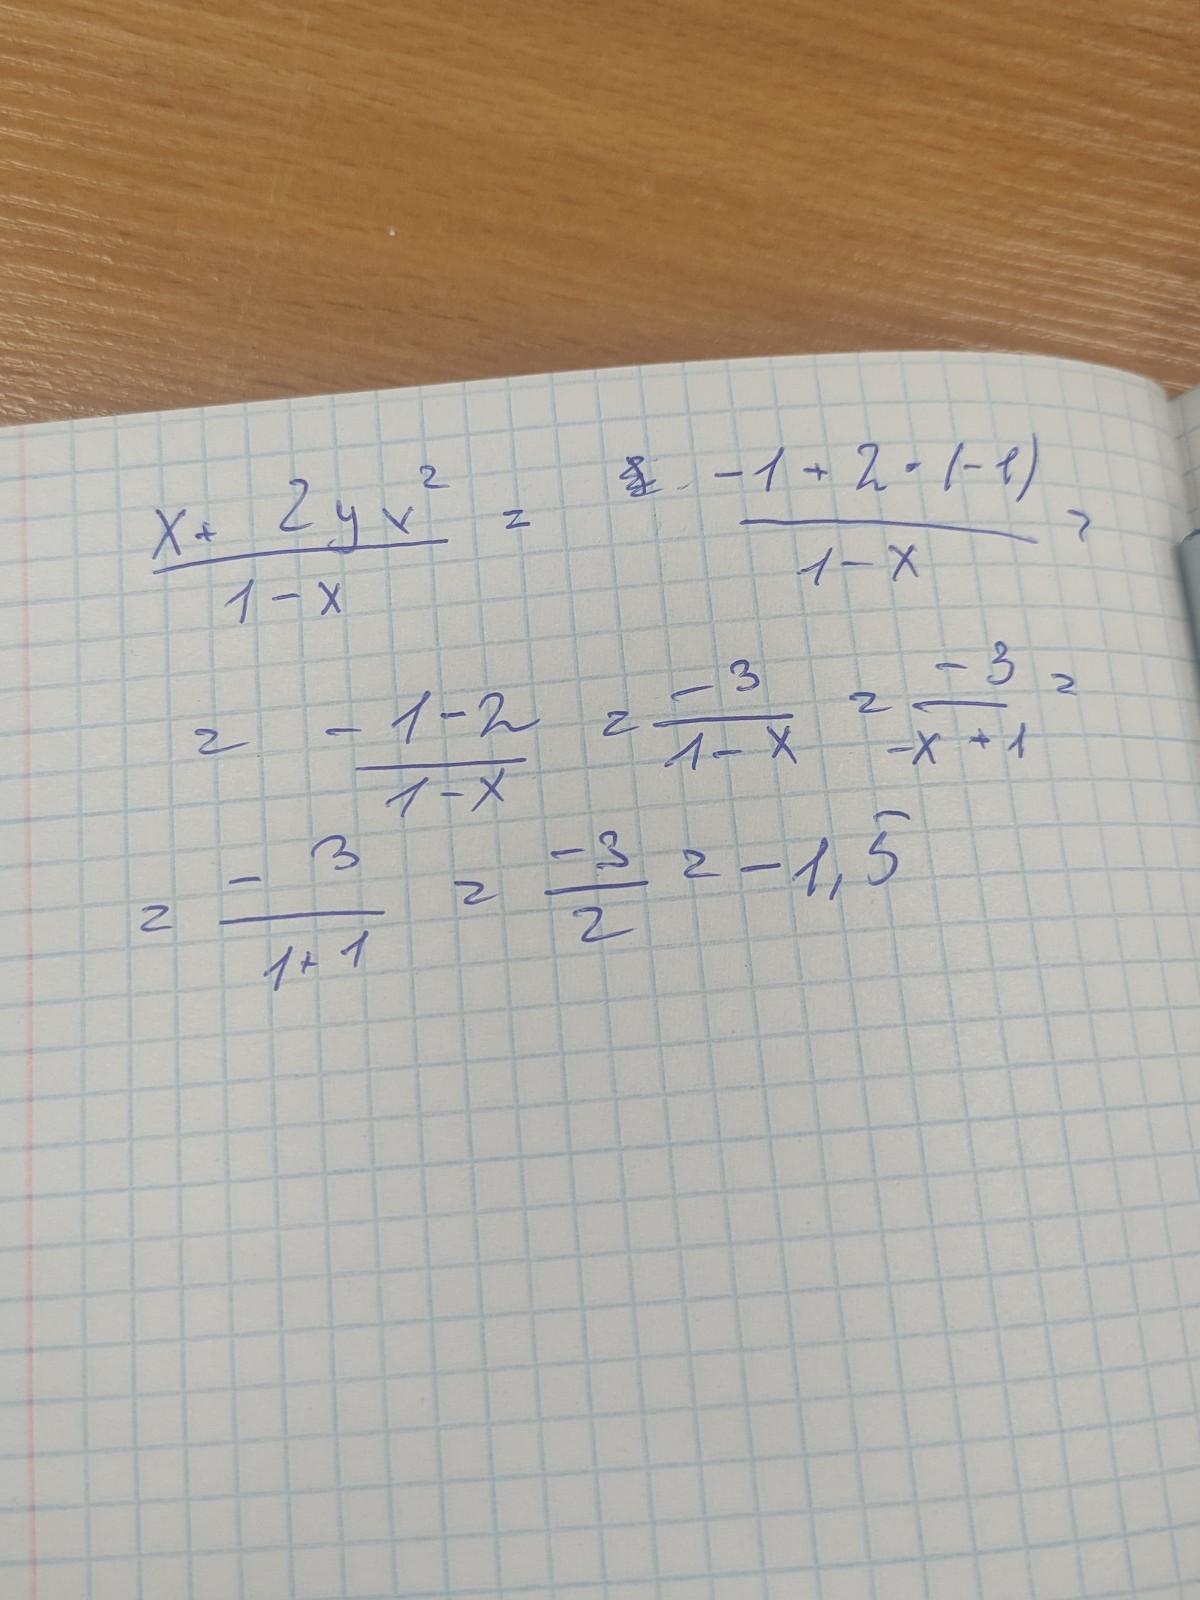 x + 2yx² / 1 - x = -1 + 2 · (-1) / 1 - x =
= - 1 - 2 / 1 - x = -3 / 1 - x = -3 / -x + 1 =
= - 3 / 1 + 1 = -3 / 2 = -1,5